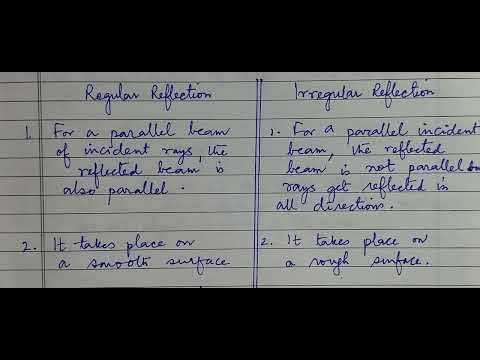 Regular Reflection
1. For a parallel beam
of incident rays, the
reflected beam is
also parallel.
2. It takes place on
a smooth surface
Irregular Reflection
1. For a parallel incident
beam, the reflected
beam is not parallel
rays get reflected in
all directions.
2. It takes place on
a rough surface.